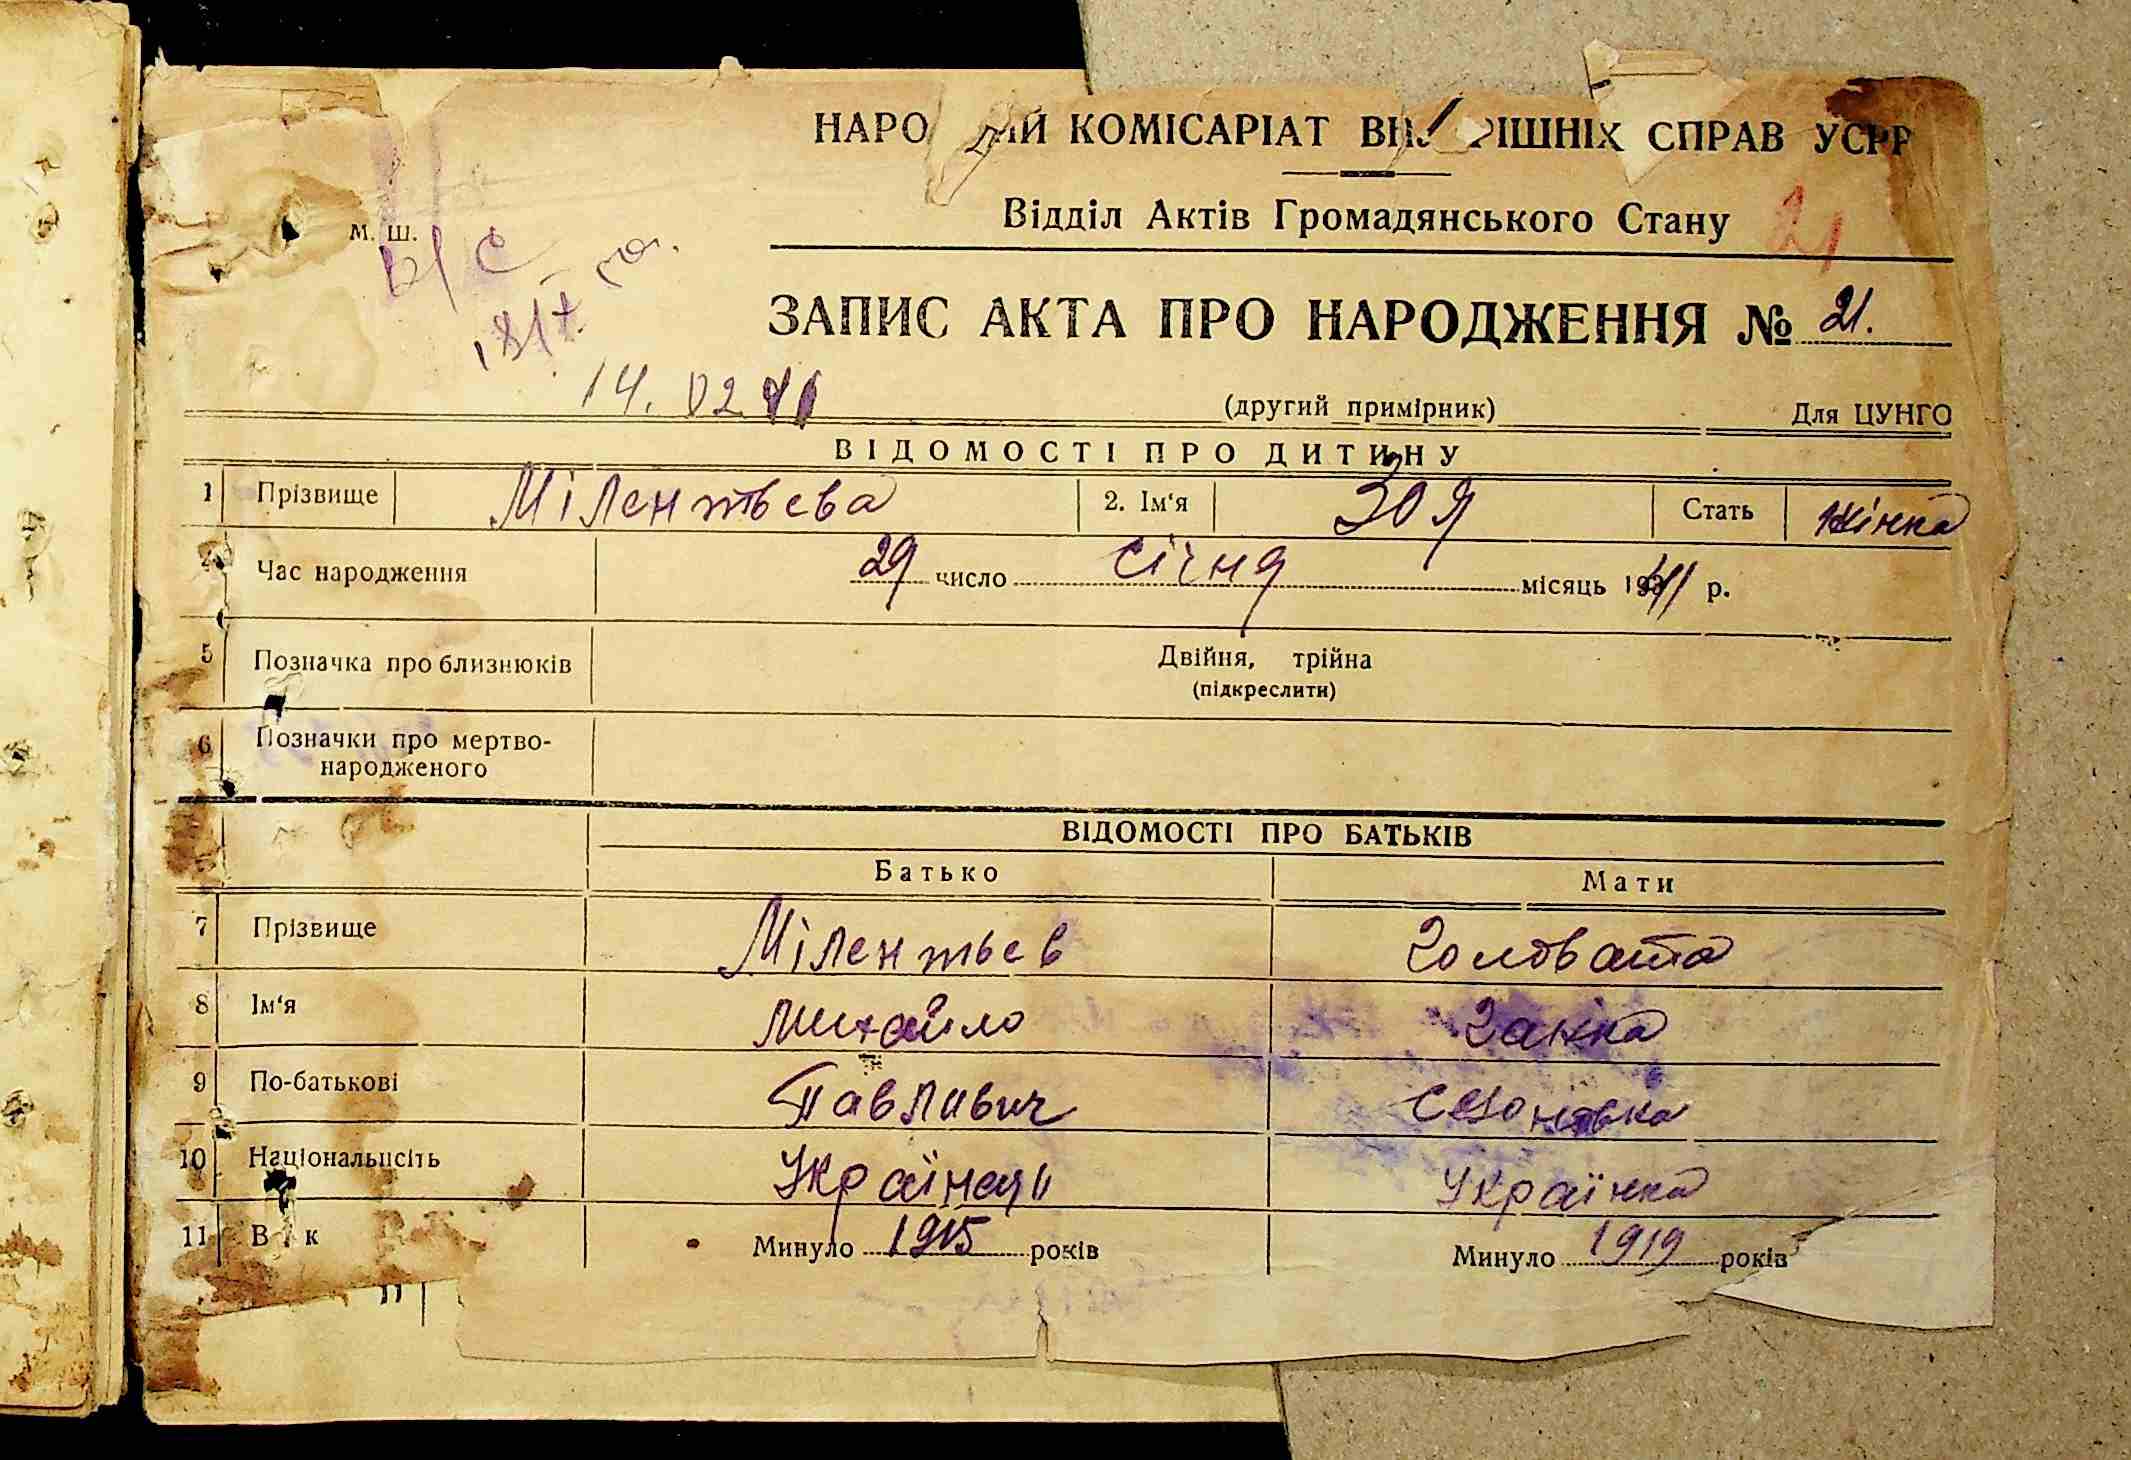 НАРОДНІЙ КОМІСАРІАТ ВНУТРІШНІХ СПРАВ УСРР
Відділ Актів Громадянського Стану 21
м. ш.
ЗАПИС АКТА ПРО НАРОДЖЕННЯ № 21.
14. 02 41
(другий примірник) Для ЦУНГО
ВІДОМОСТІ ПРО ДИТИНУ
1 Прізвище Мілентьева 2. Ім‘я Зоя Стать жінка
Час народження 29 число січня місяць 1941 р.
5 Позначка про близнюків Двійня, трійна
(підкреслити)
6 Позначки про мертво-
народженого
ВІДОМОСТІ ПРО БАТЬКІВ
Батько Мати
7 Прізвище Мілентьев Головата
8 Ім‘я Михайло Ганна
9 По-батькові Павлович
10 Національність Українец Українка
11 Вік Минуло 1915 років Минуло 1919 років
11